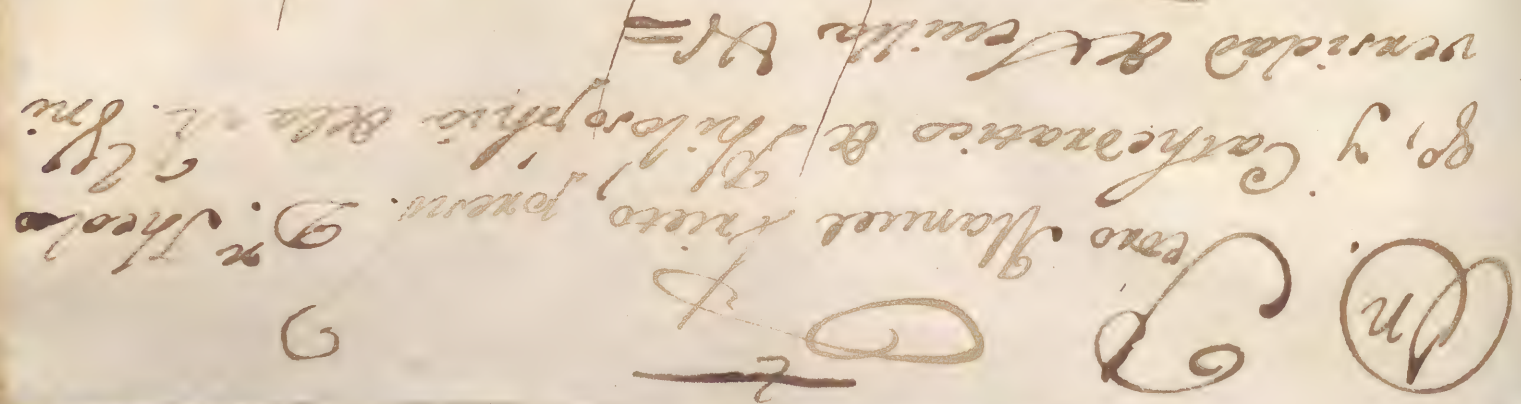 Dn. Pedro Manuel Prieto, Dr. Theolo
go, y Cathedratico de Philosophia de la R. Vni
versidad de Sevilla